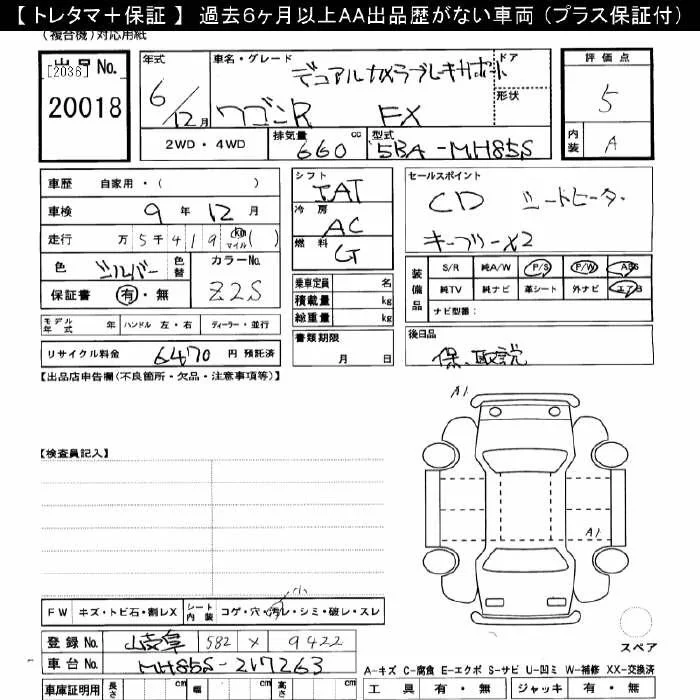 【 トレタマ＋保証 】 過去６ヶ月以上ＡＡ出品歴がない車両 （プラス保証付）
（複合機）対応用紙
出品 No. [2036]
20018
年式 6/12月
車名・グレード デュアルカメラブレーキサポート
ワゴンR FX
ドア
形状
評価点 5
内装 A
2WD・4WD
排気量 660 cc
型式 5BA-MH85S
車歴 自家用・( )
車検 9年12月
走行 万5千419 km マイル( )
色 シルバー 色替
カラーNo. Z2S
保証書 有・無
モデル年式 年 ハンドル 左・右 ディーラー・並行
リサイクル料金 6470 円 預託済
シフト IAT
冷房 AC
燃料 G
乗車定員 名
積載量 kg
総重量 kg
書類期限
月 日
セールスポイント
CD シートヒーター
キーフリーX2
装備品 S/R 純A/W P/S P/W ABS
純TV 純ナビ 革シート 外ナビ エアB
ナビ型番：
後日品
保、取説
【出品店申告欄（不良箇所・欠品・注意事項等）】
【検査員記入】
A1
A1
FW キズ・トビ石・割レX シート内装 コゲ・穴・汚レ・シミ・破レ・スレ
小
登録 No. 岐阜 582 X 9422
車台 No. MH85S-217263
車庫証明用 長さ cm 幅 cm 高さ cm
スペア
A-キズ C-腐食 E-エクボ S-サビ U-凹ミ W-補修 XX-交換済
工具 有・無 ジャッキ 有・無